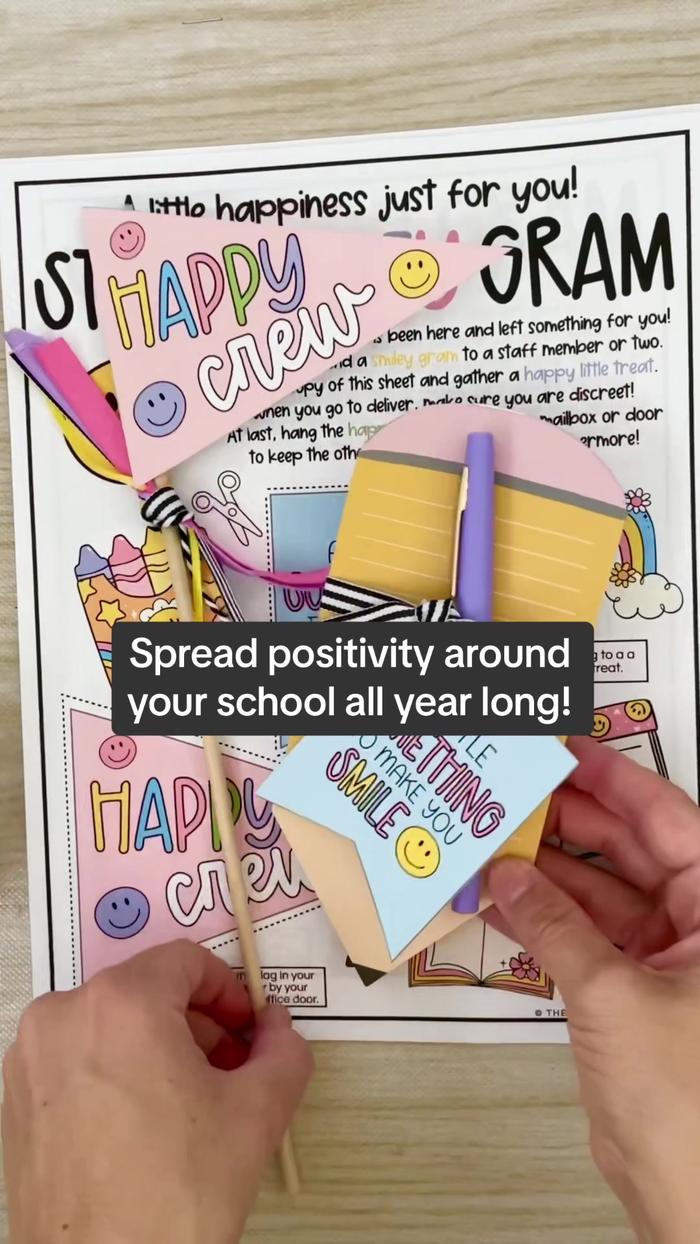 A little happiness just for you!
GRAM
HAPPY
crew
been here and left something for you!
a smiley gram to a staff member or two.
of this sheet and gather a happy little treat.
when you go to deliver, make sure you are discreet!
At last, hang the mailbox or door
to keep the
Spread positivity around
your school all year long!
to a a
treat.
SOMETHING
TO MAKE YOU
SMILE
HAPPY
crew
flag in your
by your
office door.
© THE